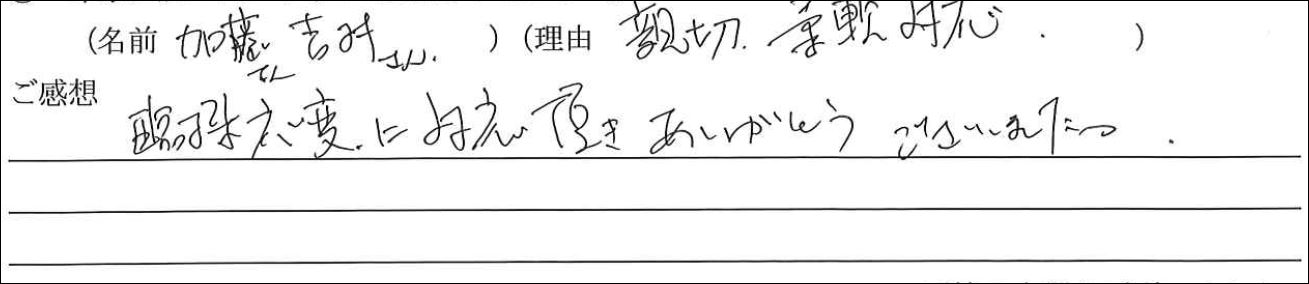 (名前 加藤さん 吉村さん. ) (理由 親切. 柔軟対応. )
ご感想
臨機応変に対応頂きありがとうございました.